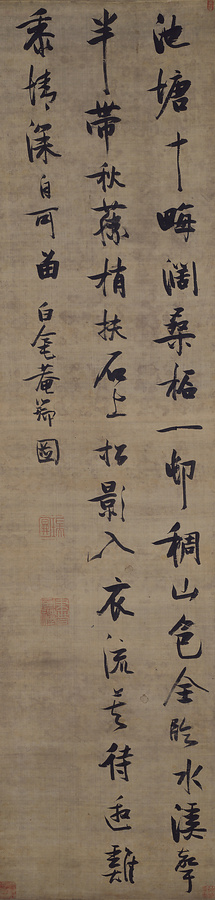 池塘十畮闊桑柘一邨稠山色全臨水溪聲
半帶秋藤梢扶石上松影入衣流莫待邀雞
黍情深自可留白毫菴瑞圖